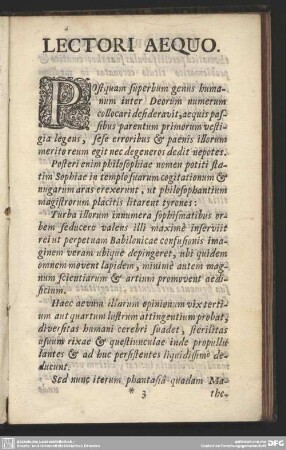 LECTORI AEQUO.
POstquam superbum genus huma-
num inter Deorum numerum
collocari desideravit, aequis pas-
sibus parentum primorum vesti-
gia legens, sese erroribus & paenis illorum
meritò reum egit nec degeneres dedit nepotes.
Posteri enim philosophiae nomen potiti sta-
tim Sophiae in templo suarum cogitationum &
nugarum aras erexerunt, ut philosophantium
magistrorum placitis litarent tyrones:
Turba illorum innumera sophismatibus or-
bem seducere valens illi maximè inserviit
rei ut perpetuam Babilonicae confusionis ima-
ginem veram ubique depingeret, ubi quidem
omnem movent lapidem, minimè autem mag-
num scientiarum & artium promovent aedi-
ficium.
Haec aevum illarum opinionum vix terti-
um aut quartum lustrum attingentium probat,
diversitas humani cerebri suadet, sterilitas
usuum rixae & quaestiunculae inde propullu-
lantes & ad huc persistentes liquidissimè de-
ducunt.
Sed nunc iterum phantasiâ quadam Ma-
* 3
the-
DFG